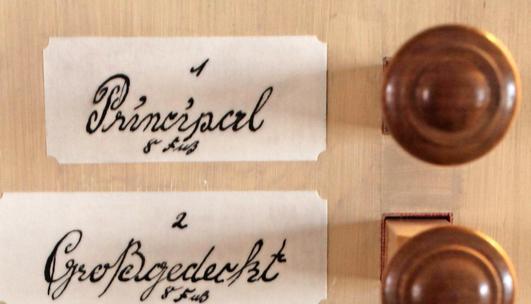 1
Principal
8 Fuß
2
Großgedeckt
8 Fuß